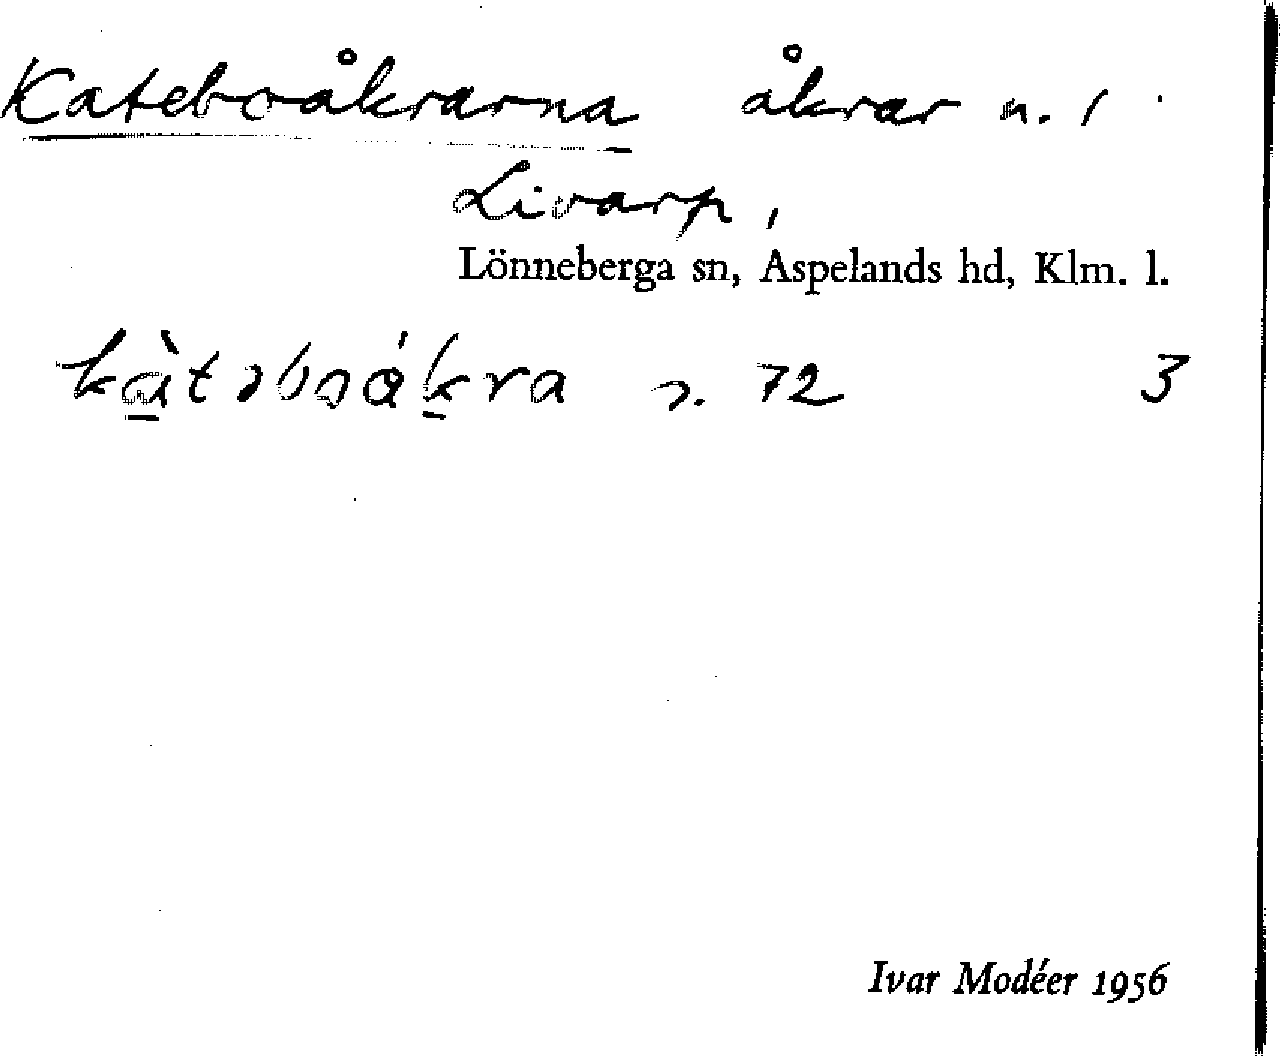 Kateboåkrarna åkrar n. 1
Livarp,
Lönneberga sn, Aspelands hd, Klm. l.
72 3
Ivar Modéer 1956